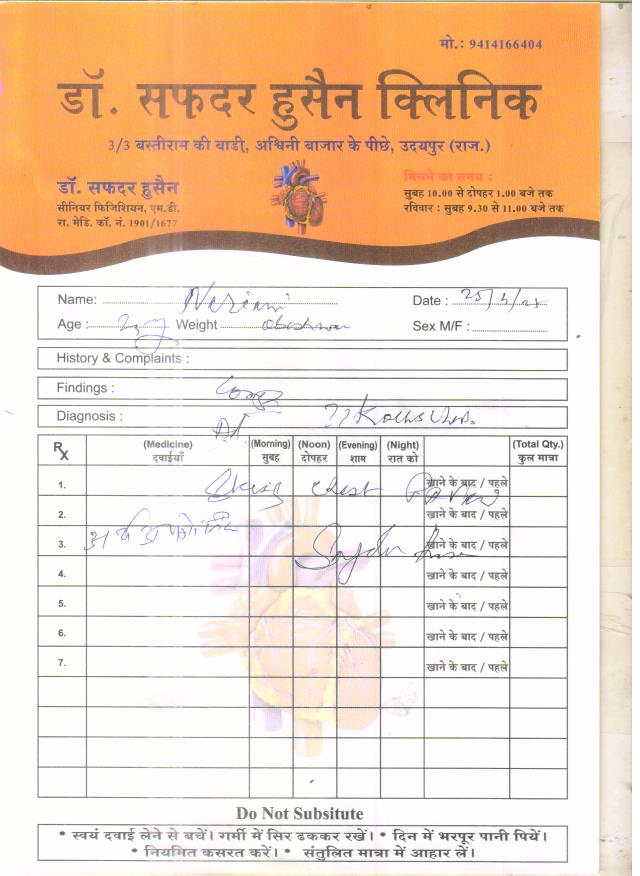 मो.: 9414166404
डॉ. सफदर हुसैन क्लिनिक
3/3 बस्तीराम की बाडी, अश्विनी बाजार के पीछे, उदयपुर (राज.)
डॉ. सफदर हुसैन
सीनियर फिजिशियन, एम.डी.
रा. मेडि. कॉ. नं. 1901/1677
मिलने का समय :
सुबह 10.00 से दोपहर 1.00 बजे तक
रविवार : सुबह 9.30 से 11.00 बजे तक
Name: Date :
Age : Weight Sex M/F :
History & Complaints :
Findings :
Diagnosis :
Rx (Medicine) दवाईयाँ (Morning) सुबह (Noon) दोपहर (Evening) शाम (Night) रात को (Total Qty.) कुल मात्रा
1. chest खाने के बाद / पहले
2. खाने के बाद / पहले
3. खाने के बाद / पहले
4. खाने के बाद / पहले
5. खाने के बाद / पहले
6. खाने के बाद / पहले
7. खाने के बाद / पहले
Do Not Subsitute
* स्वयं दवाई लेने से बचें। गर्मी में सिर ढककर रखें। * दिन में भरपूर पानी पियें।
* नियमित कसरत करें। * संतुलित मात्रा में आहार लें।